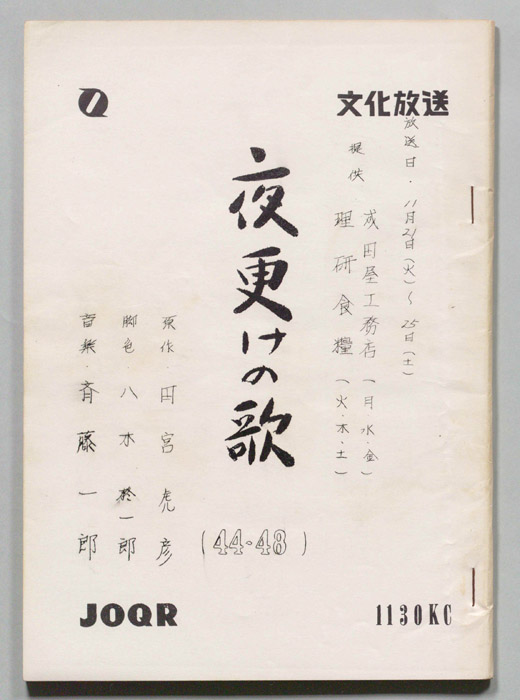 文化放送
放送日・11月21日(火)〜25日(土)
提供
成田屋工務店(月・水・金)
理研食糧(火・木・土)
夜更けの歌
(44・48)
原作・田宮虎彦
脚色 八木柊一郎
音楽・斉藤一郎
JOQR
1130KC